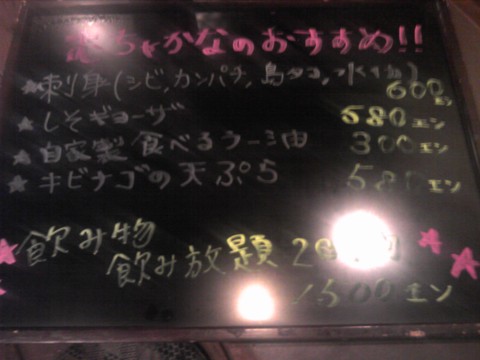 むちゃかなのおすすめ!!
★刺身(シビ,カンパチ,島タコ,水イカ) 600エン
★しそギョーザ 580エン
★自家製 食べるラー油 300エン
★キビナゴの天ぷら 580エン
★飲み物
飲み放題 2
1500エン